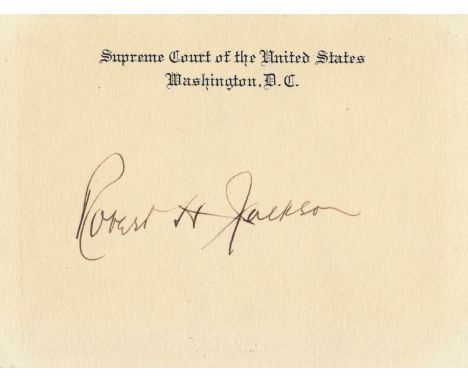 Supreme Court of the United States
Washington, D. C.
Robert H Jackson